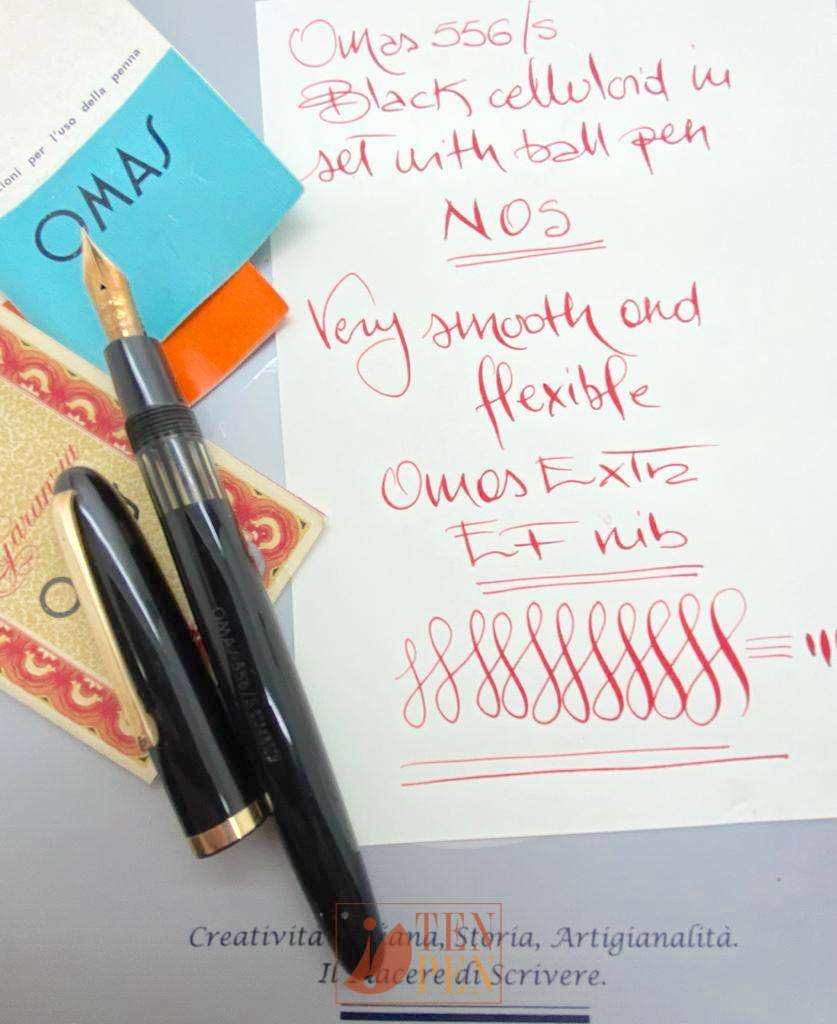 Omas 556/s
Black celluloid in
set with ball pen
NOS
Very smooth and
flexible
Omas Extra
EF nib
ioni per l'uso della penna
OMAS
Garanzia
Creatività Italiana, Storia, Artigianalità.
Il Piacere di Scrivere.
TEN
PEN